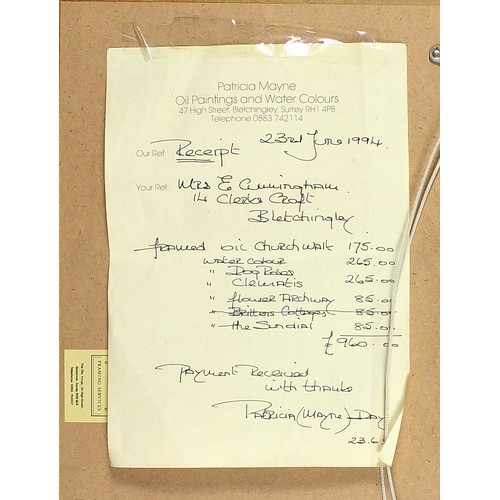 Patricia Mayne
Oil Paintings and Water Colours
47 High Street, Bletchingley, Surrey RH1 4PB
Telephone 0883 742114
23rd June 1994.
Our Ref: Receipt
Your Ref: Mrs E Cunningham
14 Clerks Croft
Bletchingley
framed oil Church Walk 175.00
water colour 265.00
" Dog Roses
" Clematis 265.00
" flower Archway 85.00
" Brittens Cottages 85.00
" the Sundial 85.00
£960.00
Payment Received
with thanks
Patricia (Mayne) Day
23.6
FRAMING SERVICES